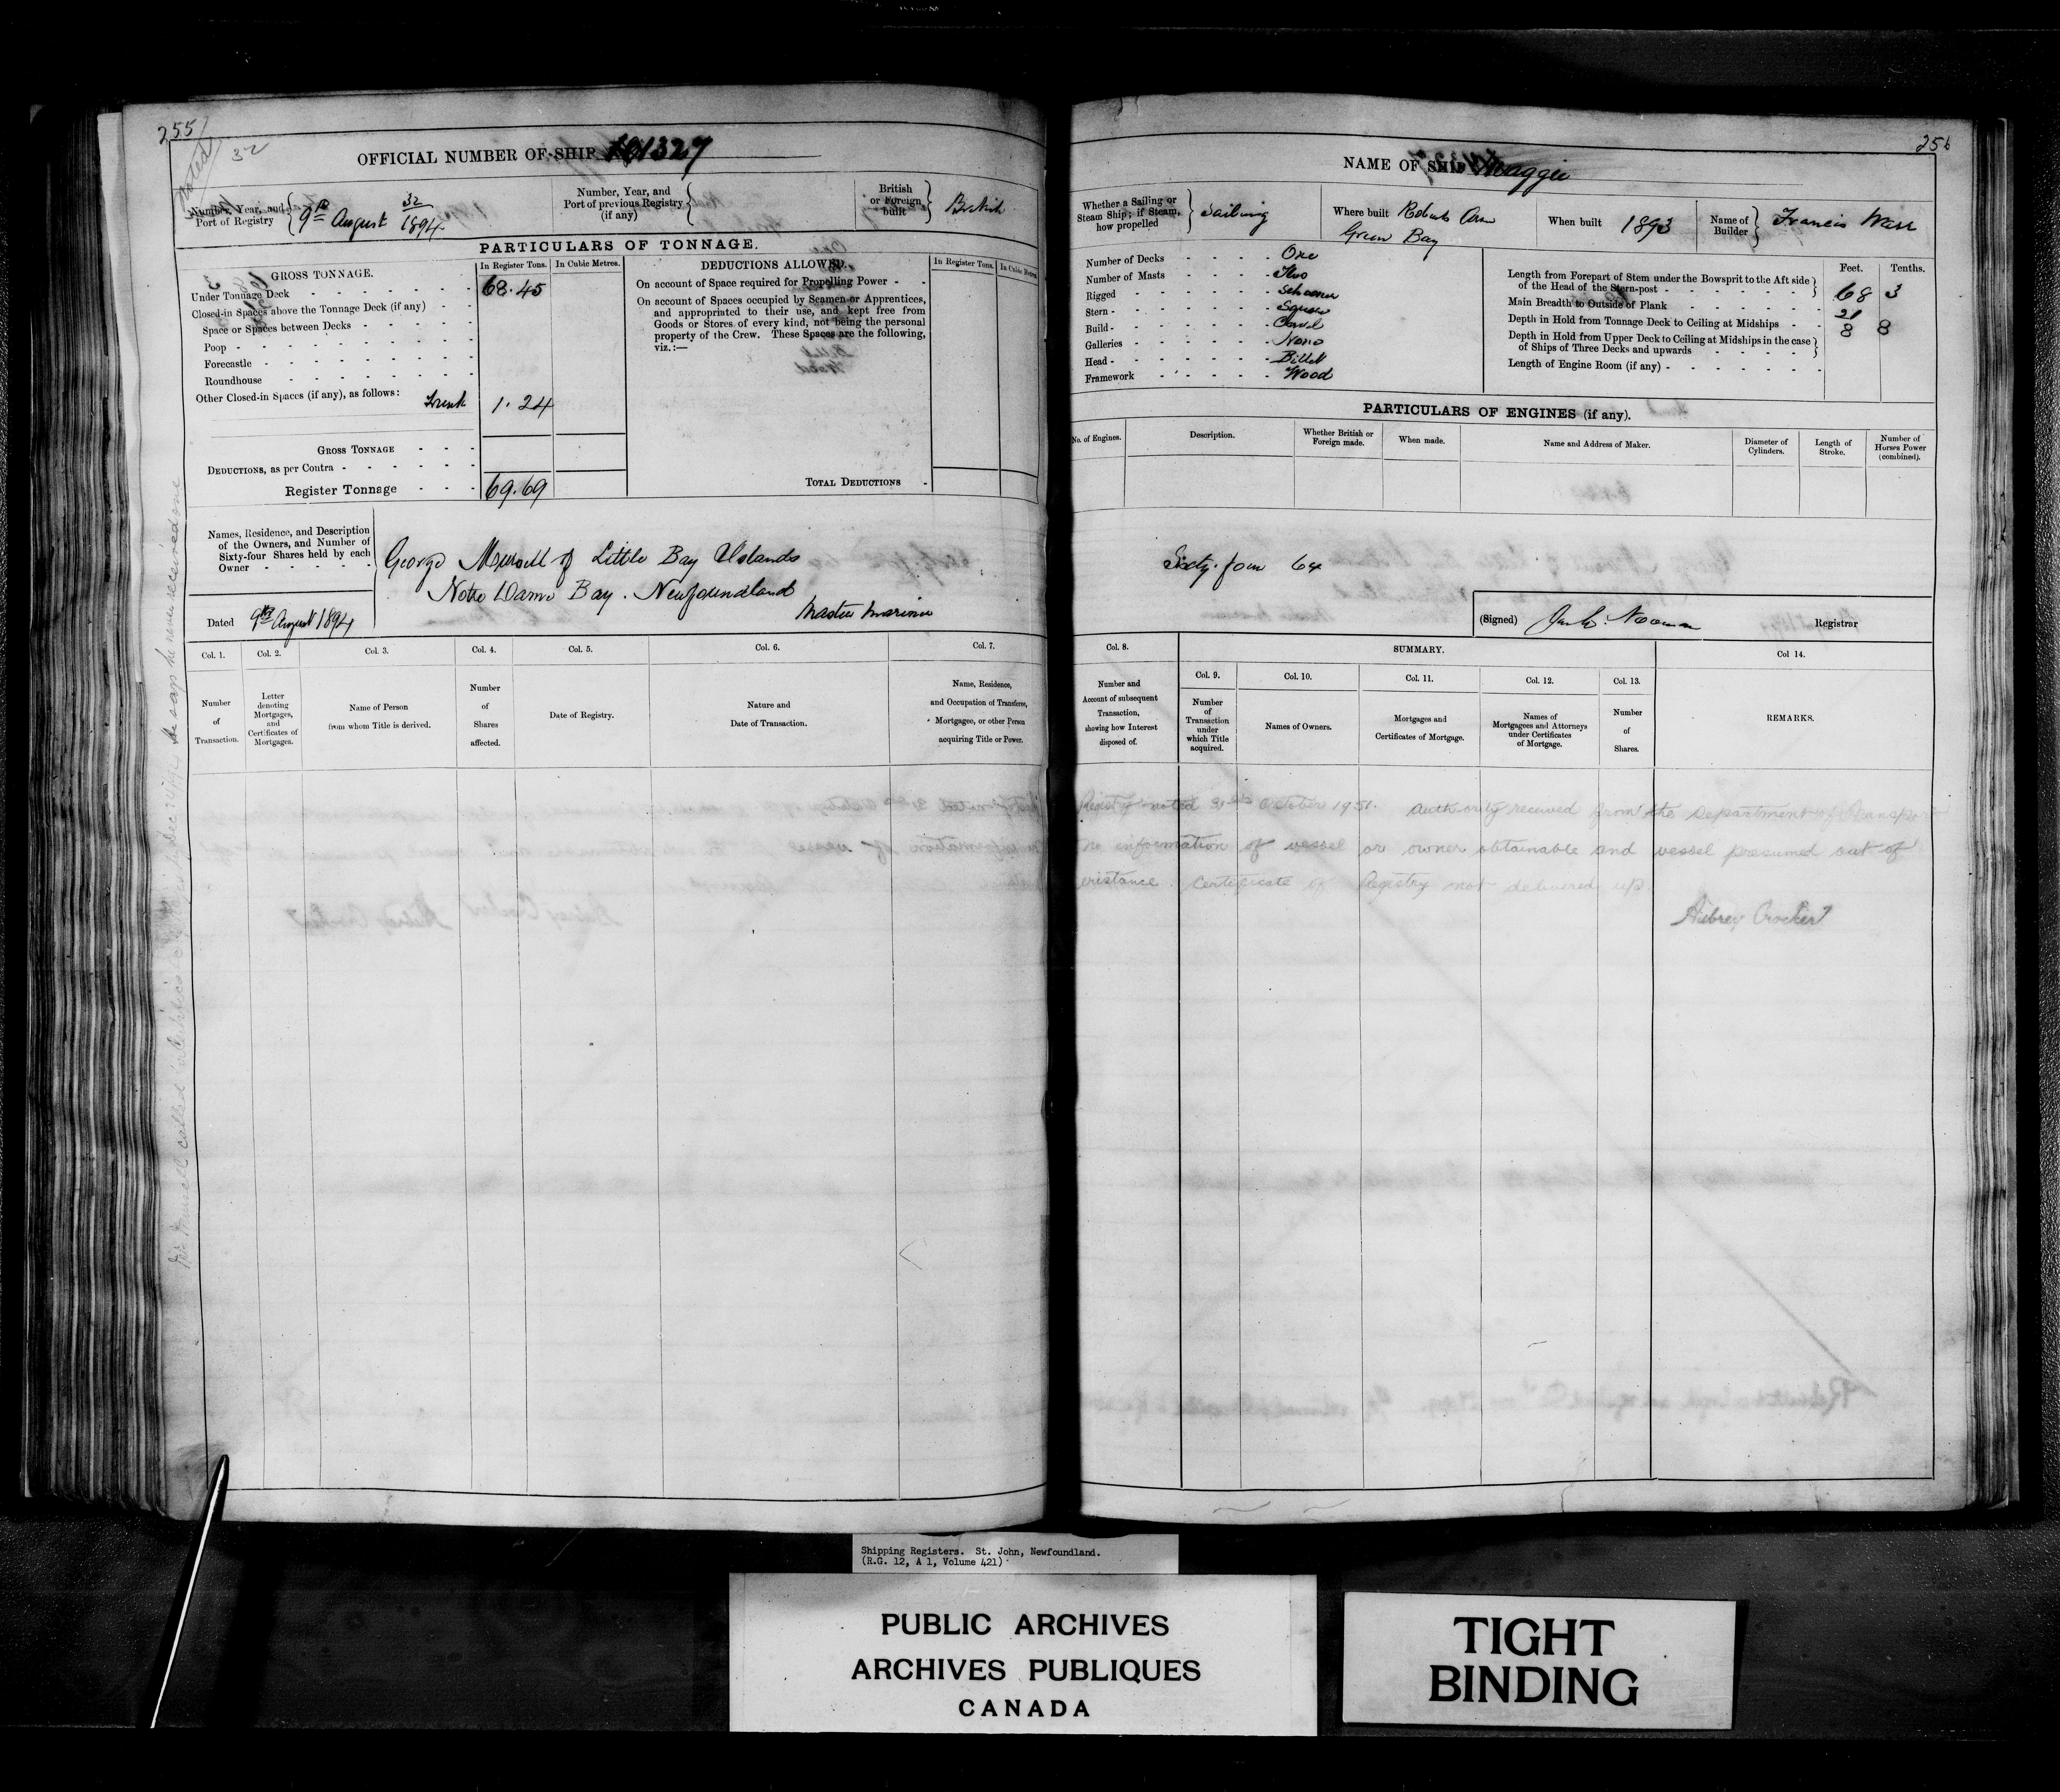 255
256
noted
32
OFFICIAL NUMBER OF SHIP 101327
Number, Year, and Port of Registry { 32 9th August 1894
Number, Year, and Port of previous Registry (if any) {
British or Foreign built } British
PARTICULARS OF TONNAGE.
GROSS TONNAGE. In Register Tons. In Cubic Metres.
Under Tonnage Deck 68.45
Closed-in Spaces above the Tonnage Deck (if any)
Space or Spaces between Decks
Poop
Forecastle
Roundhouse
Other Closed-in Spaces (if any), as follows: Trunk 1.24
GROSS TONNAGE
DEDUCTIONS, as per Contra
Register Tonnage 69.69
DEDUCTIONS ALLOWED. In Register Tons. In Cubic Metres
On account of Space required for Propelling Power
On account of Spaces occupied by Seamen or Apprentices,
and appropriated to their use, and kept free from
Goods or Stores of every kind, not being the personal
property of the Crew. These Spaces are the following,
viz.:—
TOTAL DEDUCTIONS
Names, Residence, and Description
of the Owners, and Number of
Sixty-four Shares held by each
Owner
George of Little Bay Islands
Notre Dame Bay. Newfoundland
Master Mariner
Dated 9th August 1894
Col. 1. Col. 2. Col. 3. Col. 4. Col. 5. Col. 6. Col. 7.
Number of Transaction.
Letter denoting Mortgages, and Certificates of Mortgages.
Name of Person from whom Title is derived.
Number of Shares affected.
Date of Registry.
Nature and Date of Transaction.
Name, Residence, and Occupation of Transferee, Mortgagee, or other Person acquiring Title or Power.
NAME OF SHIP Maggie
Whether a Sailing or Steam Ship; if Steam, how propelled } Sailing
Where built Roberts Arm
Green Bay
When built 1893
Name of Builder } Francis Warr
Number of Decks One
Number of Masts Two
Rigged Schooner
Stern Square
Build Carvel
Galleries None
Head Billet
Framework Wood
Feet. Tenths.
Length from Forepart of Stem under the Bowsprit to the Aft side of the Head of the Stern-post } 68 3
Main Breadth to Outside of Plank 21
Depth in Hold from Tonnage Deck to Ceiling at Midships 8 8
Depth in Hold from Upper Deck to Ceiling at Midships in the case of Ships of Three Decks and upwards }
Length of Engine Room (if any)
PARTICULARS OF ENGINES (if any).
No. of Engines. Description. Whether British or Foreign made. When made. Name and Address of Maker. Diameter of Cylinders. Length of Stroke. Number of Horses Power (combined).
Sixty-four 64
(Signed) Registrar
Col. 8. SUMMARY. Col 14.
Number and Account of subsequent Transaction, showing how Interest disposed of.
Col. 9. Col. 10. Col. 11. Col. 12. Col. 13.
Number of Transaction under which Title acquired.
Names of Owners.
Mortgages and Certificates of Mortgage.
Names of Mortgagees and Attorneys under Certificates of Mortgage.
Number of Shares.
REMARKS.
Registry noted 31st October 1951. Authority received from the Department of Transport
no information of vessel or owner obtainable and vessel presumed out of
existance. Certificate of Registry not delivered up.
Aubrey Crocker
Shipping Registers. St. John, Newfoundland.
(R.G. 12, A 1, Volume 421)
PUBLIC ARCHIVES
ARCHIVES PUBLIQUES
CANADA
TIGHT
BINDING